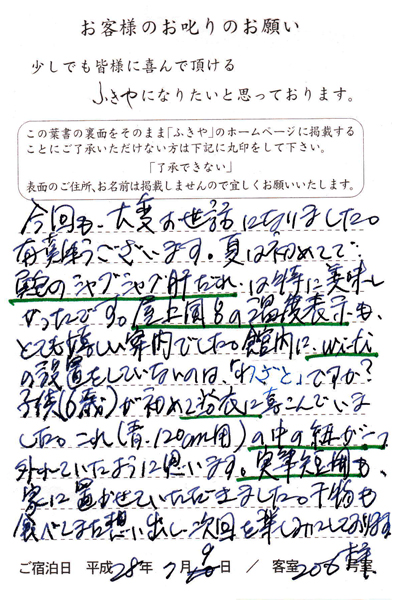 お客様のお叱りのお願い
少しでも皆様に喜んで頂ける
ふきやになりたいと思っております。
この葉書の裏面をそのまま「ふきや」のホームページに掲載する
ことにご了承いただけない方は下記に丸印をして下さい。
「了承できない」
表面のご住所、お名前は掲載しませんので宜しくお願いいたします。
今回も、大変お世話になりました。
有難うございます。夏は初めてで、
のシャブシャブ肝だれ、は特に美味し
かったです。屋上風呂の温度表示も、
とても嬉しい案内でした。館内に、wi-fi
の設置をしていないのは、「わざと」ですか?
子供(6歳)が初めて浴衣に喜こんでいま
した。これ(青、120cm用)の中の紐が一つ
外れていたように思います。実筆短冊も、
家に置かせていただきました。干物も
食べました 想い出し 次回を楽しみにしております
ご宿泊日 平成28年 7月 9日 / 客室 206号室